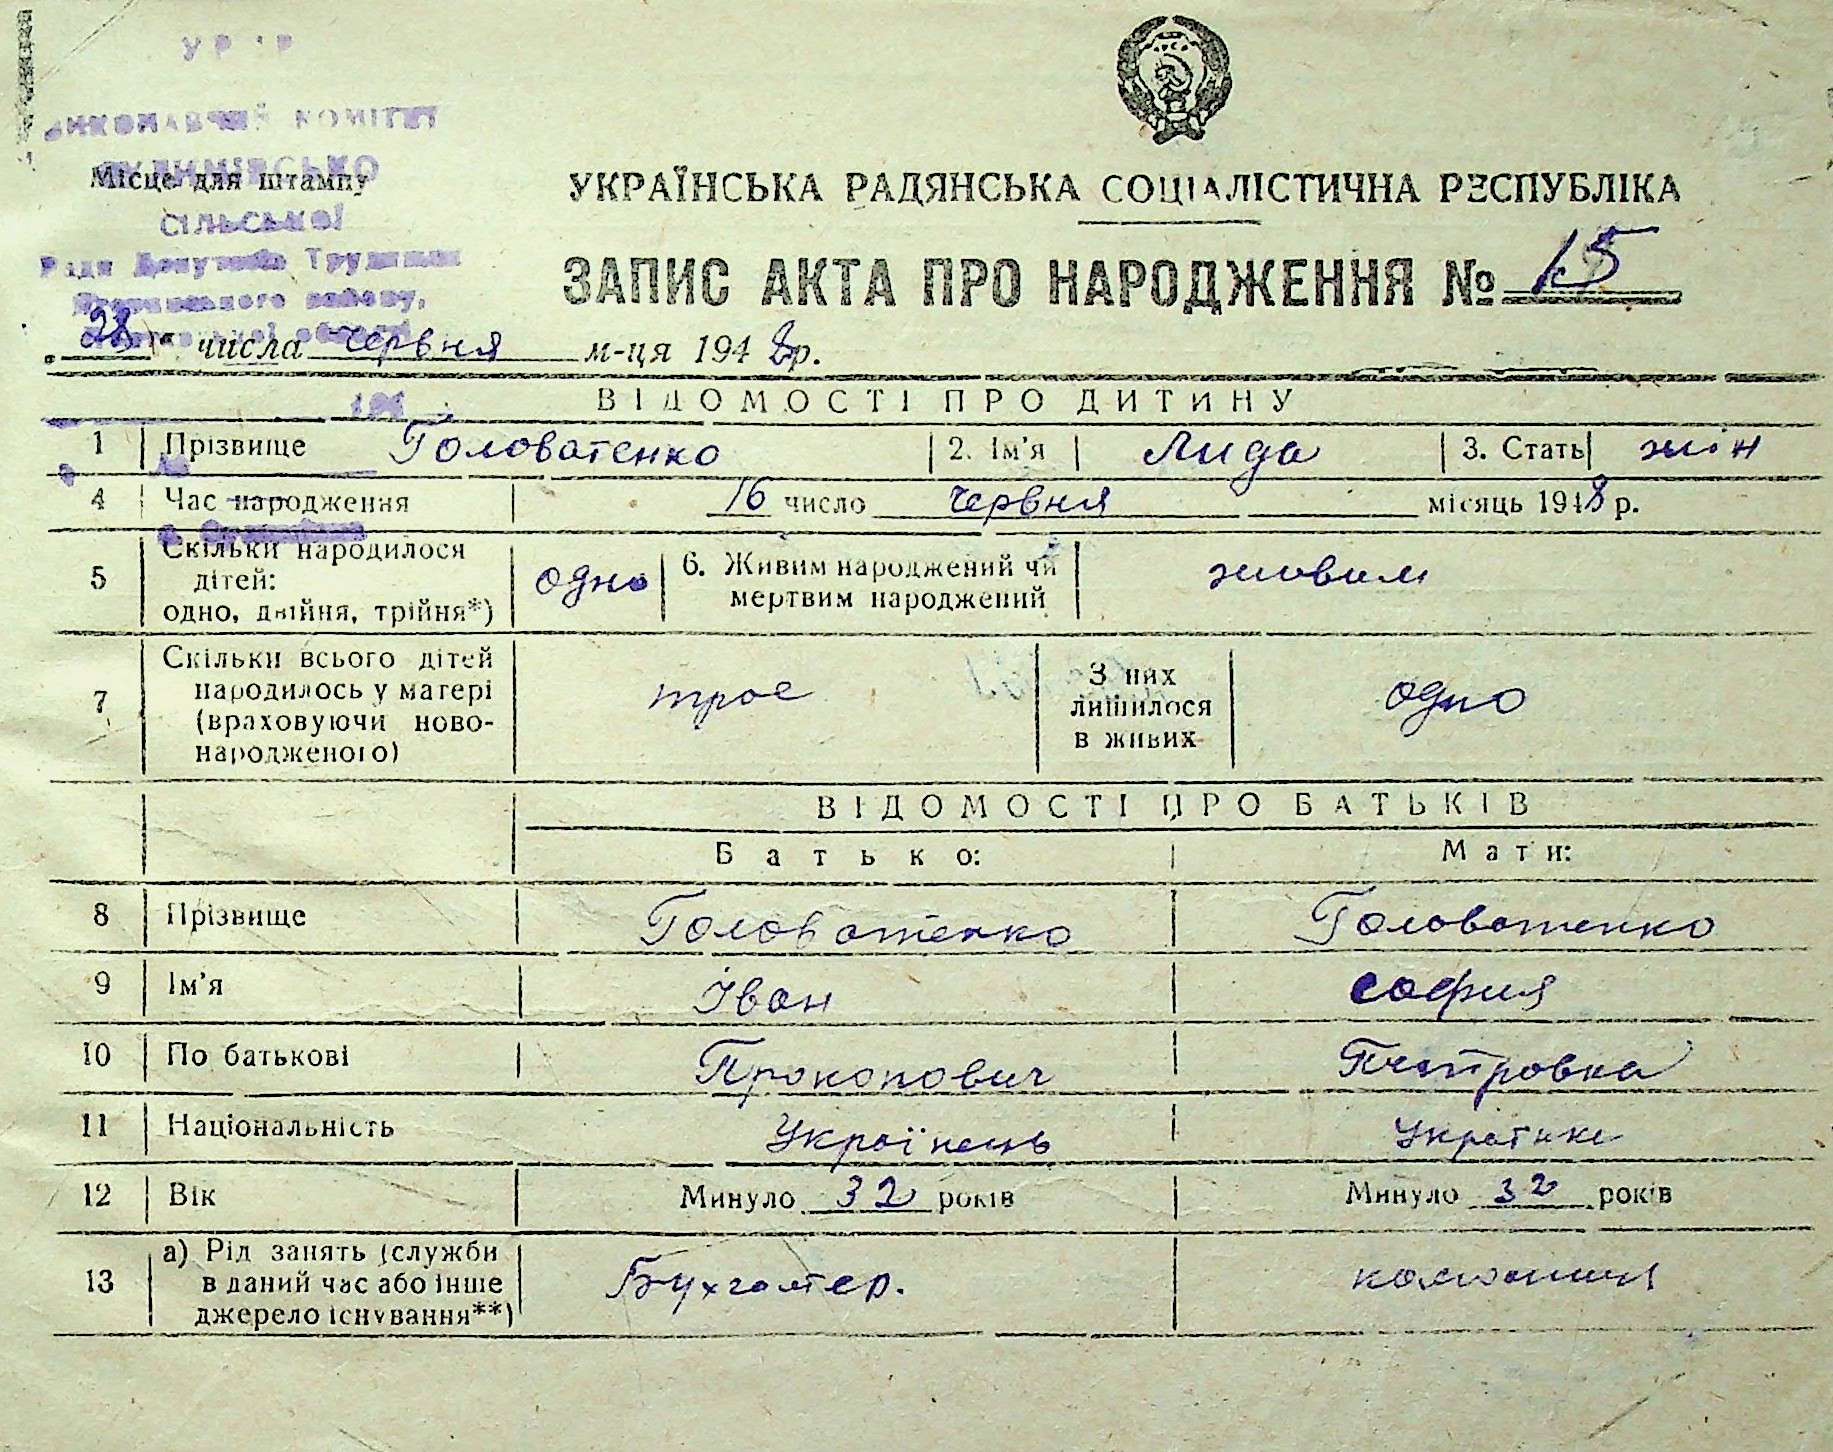 УРСР
ВИКОНАВЧИЙ КОМІТЕТ
Місце для штампу
СІЛЬСЬКОЇ
Ради Депутатів Трудящих
району,
області
УКРАЇНСЬКА РАДЯНСЬКА СОЦІАЛІСТИЧНА РЕСПУБЛІКА
ЗАПИС АКТА ПРО НАРОДЖЕННЯ № 15
„28“ числа червня м-ця 1948 р.
194
ВІДОМОСТІ ПРО ДИТИНУ
1 Прізвище Головатенко 2. Ім'я Лида 3. Стать жін
4 Час народження 16 число червня місяць 1948 р.
5 Скільки народилося дітей: одно, двійня, трійня*) одно 6. Живим народжений чи мертвим народжений живим
7 Скільки всього дітей народилось у матері (враховуючи ново-народженого) троє З них лишилося в живих одно
ВІДОМОСТІ ПРО БАТЬКІВ
Батько: Мати:
8 Прізвище Головатенко Головатенко
9 Ім'я Іван София
10 По батькові Прокопович Петровка
11 Національність Українець Українка
12 Вік Минуло 32 років Минуло 32 років
13 а) Рід занять (служби в даний час або інше джерело існування**) Бухгалтер.